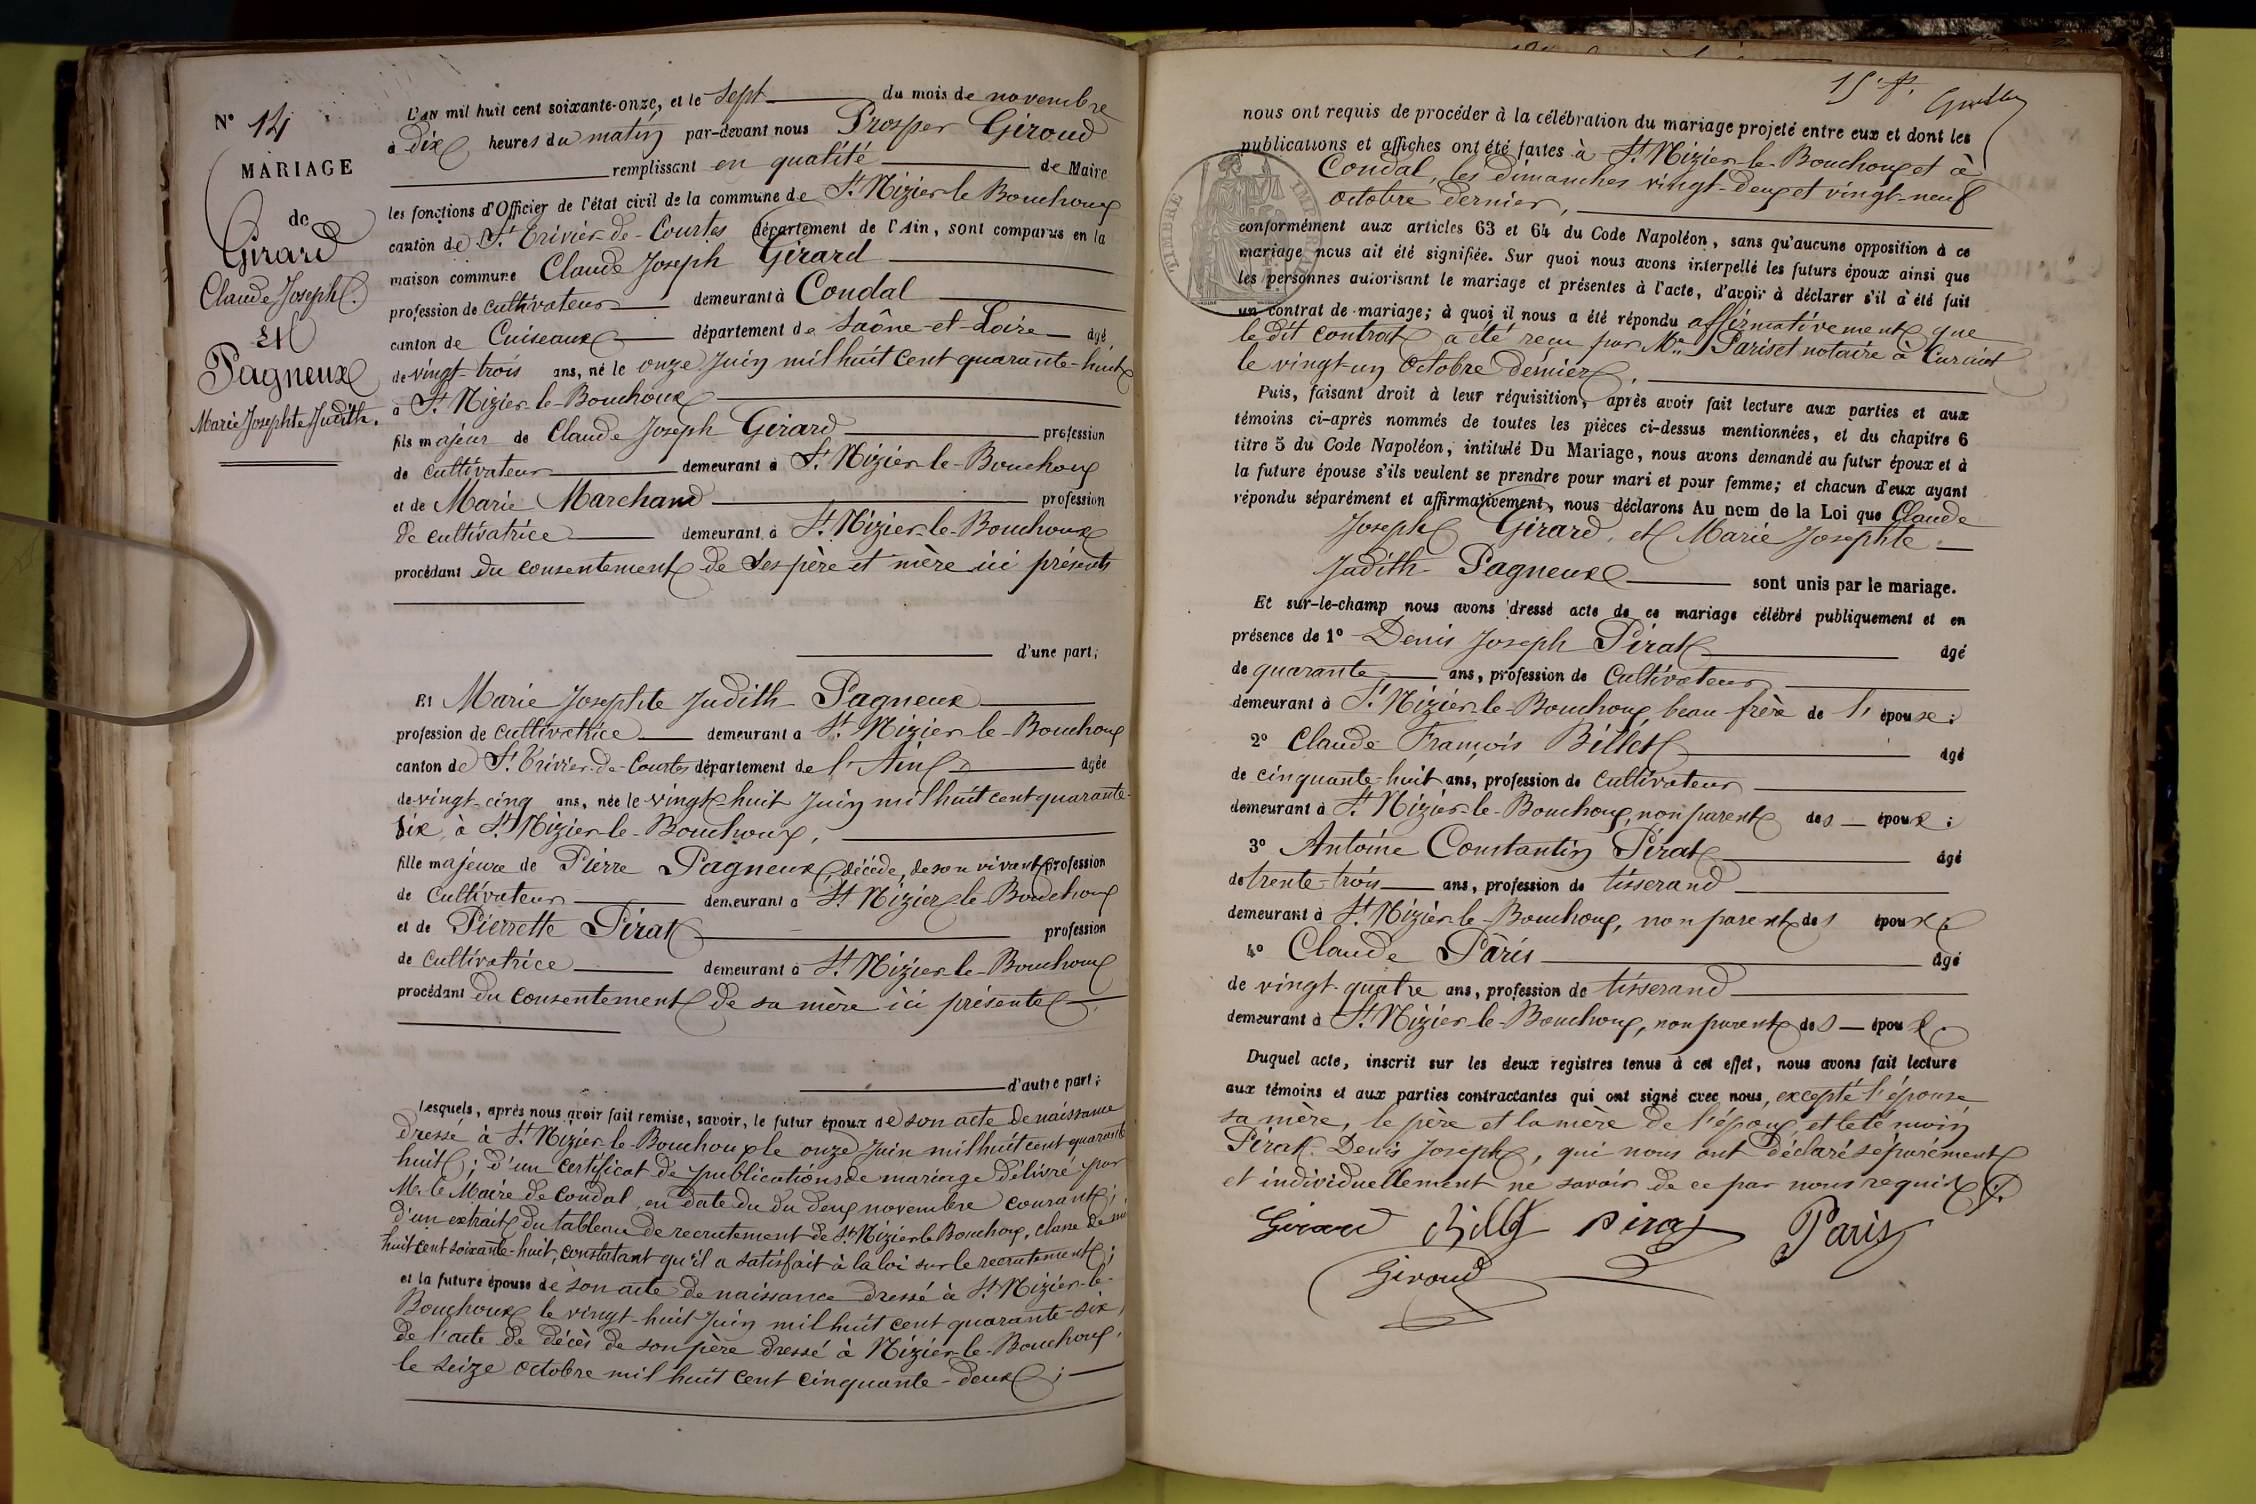 N° 14
MARIAGE
de
Girard
Claude Joseph.
Et
Pagneux
Marie Josephte Judith.
L'an mil huit cent soixante-onze, et le sept du mois de novembre
à dix heures du matin par-devant nous Prosper Giroud
remplissant en qualité de Maire
les fonctions d'Officier de l'état civil de la commune de St Nizier-le-Bouchoux
canton de St Trivier-de-Courtes département de l'Ain, sont comparus en la
maison commune Claude Joseph Girard
profession de cultivateur demeurant à Condal
canton de Cuiseaux département de Saône-et-Loire âgé
de vingt-trois ans, né le onze Juin mil huit cent quarante-huit
à St Nizier-le-Bouchoux
fils majeur de Claude Joseph Girard profession
de cultivateur demeurant à St Nizier-le-Bouchoux
et de Marie Marchand profession
de cultivatrice demeurant à St Nizier-le-Bouchoux
procédant du consentement de ses père et mère ici présents
d'une part;
Et Marie Josephte Judith Pagneux
profession de cultivatrice demeurant à St Nizier-le-Bouchoux
canton de St Trivier-de-Courtes département de l'Ain âgée
de vingt-cinq ans, née le vingt-huit Juin mil huit cent quarante-
six, à St Nizier-le-Bouchoux,
fille majeure de Pierre Pagneux, décédé, de son vivant profession
de cultivateur demeurant à St Nizier-le-Bouchoux
et de Pierrette Pirat profession
de cultivatrice demeurant à St Nizier-le-Bouchoux
procédant du consentement de sa mère ici présente,
d'autre part;
Lesquels, après nous avoir fait remise, savoir, le futur époux de son acte de naissance
dressé à St Nizier-le-Bouchoux le onze Juin mil huit cent quarante
huit; d'un certificat de publications de mariage délivré par
Mr le Maire de Condal, en date du du deux novembre courant;
d'un extrait du tableau de recrutement de St Nizier le Bouchoux, classe de mil
huit cent soixante-huit, constatant qu'il a satisfait à la loi sur le recrutement;
et la future épouse de son acte de naissance dressé à St Nizier-le-
Bouchoux le vingt-huit Juin mil huit cent quarante-six,
de l'acte de décès de son père dressé à Nizier-le-Bouchoux,
le seize octobre mil huit cent cinquante-deux;
nous ont requis de procéder à la célébration du mariage projeté entre eux et dont les
publications et affiches ont été faites à St Nizier-le-Bouchoux et à
Condal, les dimanches vingt-deux et vingt-neuf
octobre dernier,
TIMBRE IMPÉRIAL
conformément aux articles 63 et 64 du Code Napoléon, sans qu'aucune opposition à ce
mariage nous ait été signifiée. Sur quoi nous avons interpellé les futurs époux ainsi que
les personnes autorisant le mariage et présentes à l'acte, d'avoir à déclarer s'il a été fait
un contrat de mariage; à quoi il nous a été répondu affirmativement que
le dit contrat a été reçu par Me Pariset notaire à Curciat
le vingt-un octobre dernier,
Puis, faisant droit à leur réquisition, après avoir fait lecture aux parties et aux
témoins ci-après nommés de toutes les pièces ci-dessus mentionnées, et du chapitre 6
titre 5 du Code Napoléon, intitulé Du Mariage, nous avons demandé au futur époux et à
la future épouse s'ils veulent se prendre pour mari et pour femme; et chacun d'eux ayant
répondu séparément et affirmativement, nous déclarons Au nom de la Loi que Claude
Joseph Girard, et Marie Josephte
Judith Pagneux sont unis par le mariage.
Et sur-le-champ nous avons dressé acte de ce mariage célébré publiquement et en
présence de 1° Denis Joseph Pirat âgé
de quarante ans, profession de cultivateur
demeurant à St Nizier-le-Bouchoux, beau frère de l'épouse;
2° Claude François Billet âgé
de cinquante-huit ans, profession de cultivateur
demeurant à St Nizier-le-Bouchoux, non parent des époux;
3° Antoine Constantin Pirat âgé
de trente-trois ans, profession de tisserand
demeurant à St Nizier-le-Bouchoux, non parent des époux;
4° Claude Pâris âgé
de vingt-quatre ans, profession de tisserand
demeurant à St Nizier-le-Bouchoux, non parent des époux.
Duquel acte, inscrit sur les deux registres tenus à cet effet, nous avons fait lecture
aux témoins et aux parties contractantes qui ont signé avec nous, excepté l'épouse
sa mère, le père et la mère de l'époux, et le témoin
Pirat Denis Joseph, qui nous ont déclaré séparément
et individuellement ne savoir de ce par nous requis
Girard Billet Pirat Paris
Giroud